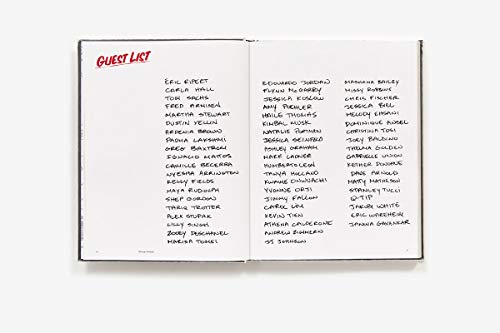 GUEST LIST
ERIC RIPERT
CARLA HALL
TOM SACHS
FRED ARMISEN
MARTHA STEWART
DUSTIN YELLIN
EPHENIA BROWN
PADMA LAKSHMI
GREG BAXTROM
IGNACIO MATTOS
CAMILLE BECERRA
NYESHA ARRINGTON
KELLY FIELDS
MAYA RUDOLPH
SHEP GORDON
TARIQ TROTTER
ALEX STUPAK
LILLY SINGH
ZOOEY DESCHANEL
MARISA TOMEI
EDOUARDO JORDAN
FLYNN MCGARRY
JESSICA KOSLOW
AMY POEHLER
HAILE THOMAS
KIMBAL MUSK
NATALIE PORTMAN
JESSICA SEINFELD
ASHLEY GRAHAM
MARK LADNER
HUMBERTO LEON
TANYA HOLLAND
KWAME ONWUACHI
YVONNE ORJI
JIMMY FALLON
CAROL LIM
KEVIN TIEN
ATHENA CALDERONE
ANDREW ZIMMERN
JJ JOHNSON
MASHAMA BAILEY
MISSY ROBBINS
CHRIS FISCHER
JESSICA BIEL
MELODY EHSANI
DOMINIQUE ANSEL
CHRISTINA TOSI
JOEY BALDINO
THELMA GOLDEN
GABRIELLE UNION
FATHER DONOHUE
DAVE ARNOLD
MATTY MATHESON
STANLEY TUCCI
Q-TIP
JALEEL WHITE
ERIC WAREHEIM
JANINA GAVANKAR